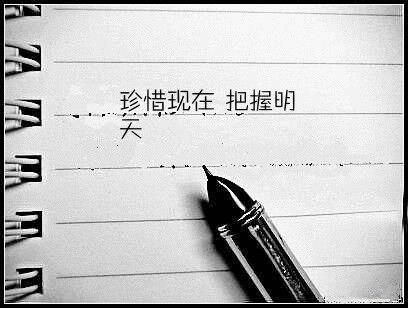 珍惜现在 把握明
天